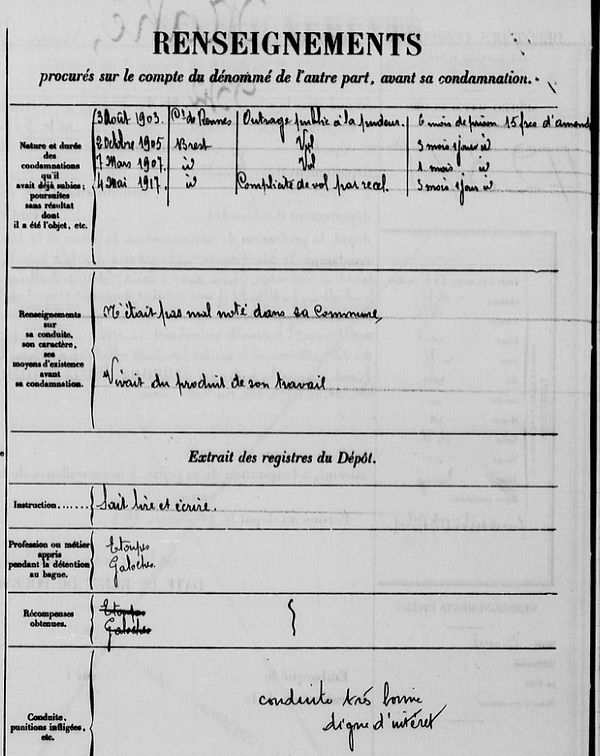 RENSEIGNEMENTS
procurés sur le compte du dénommé de l'autre part, avant sa condamnation.
Nature et durée
des
condamnations
qu'il
avait déjà subies;
poursuites
sans résultat
dont
il a été l'objet, etc.
3 Août 1903. Cr de Rennes Outrage public à la pudeur. 6 mois de prison 15 frcs d'amende
2 Octobre 1905 Brest Vol 3 mois 1 jour id
7 Mars 1907. id Vol 1 mois id
4 Mai 1917. id Complicité de vol par recel. 3 mois 1 jour id
Renseignements
sur
sa conduite,
son caractère,
ses
moyens d'existence
avant
sa condamnation.
N'était pas mal noté dans sa Commune,
Vivait du produit de son travail
Extrait des registres du Dépôt.
Instruction....... Sait lire et écrire.
Profession ou métier
appris
pendant la détention
au bagne.
Etoupes
Galoches.
Récompenses
obtenues.
Etoupes
Galoches
Conduite,
punitions infligées,
etc.
conduite très bonne
digne d'intéret